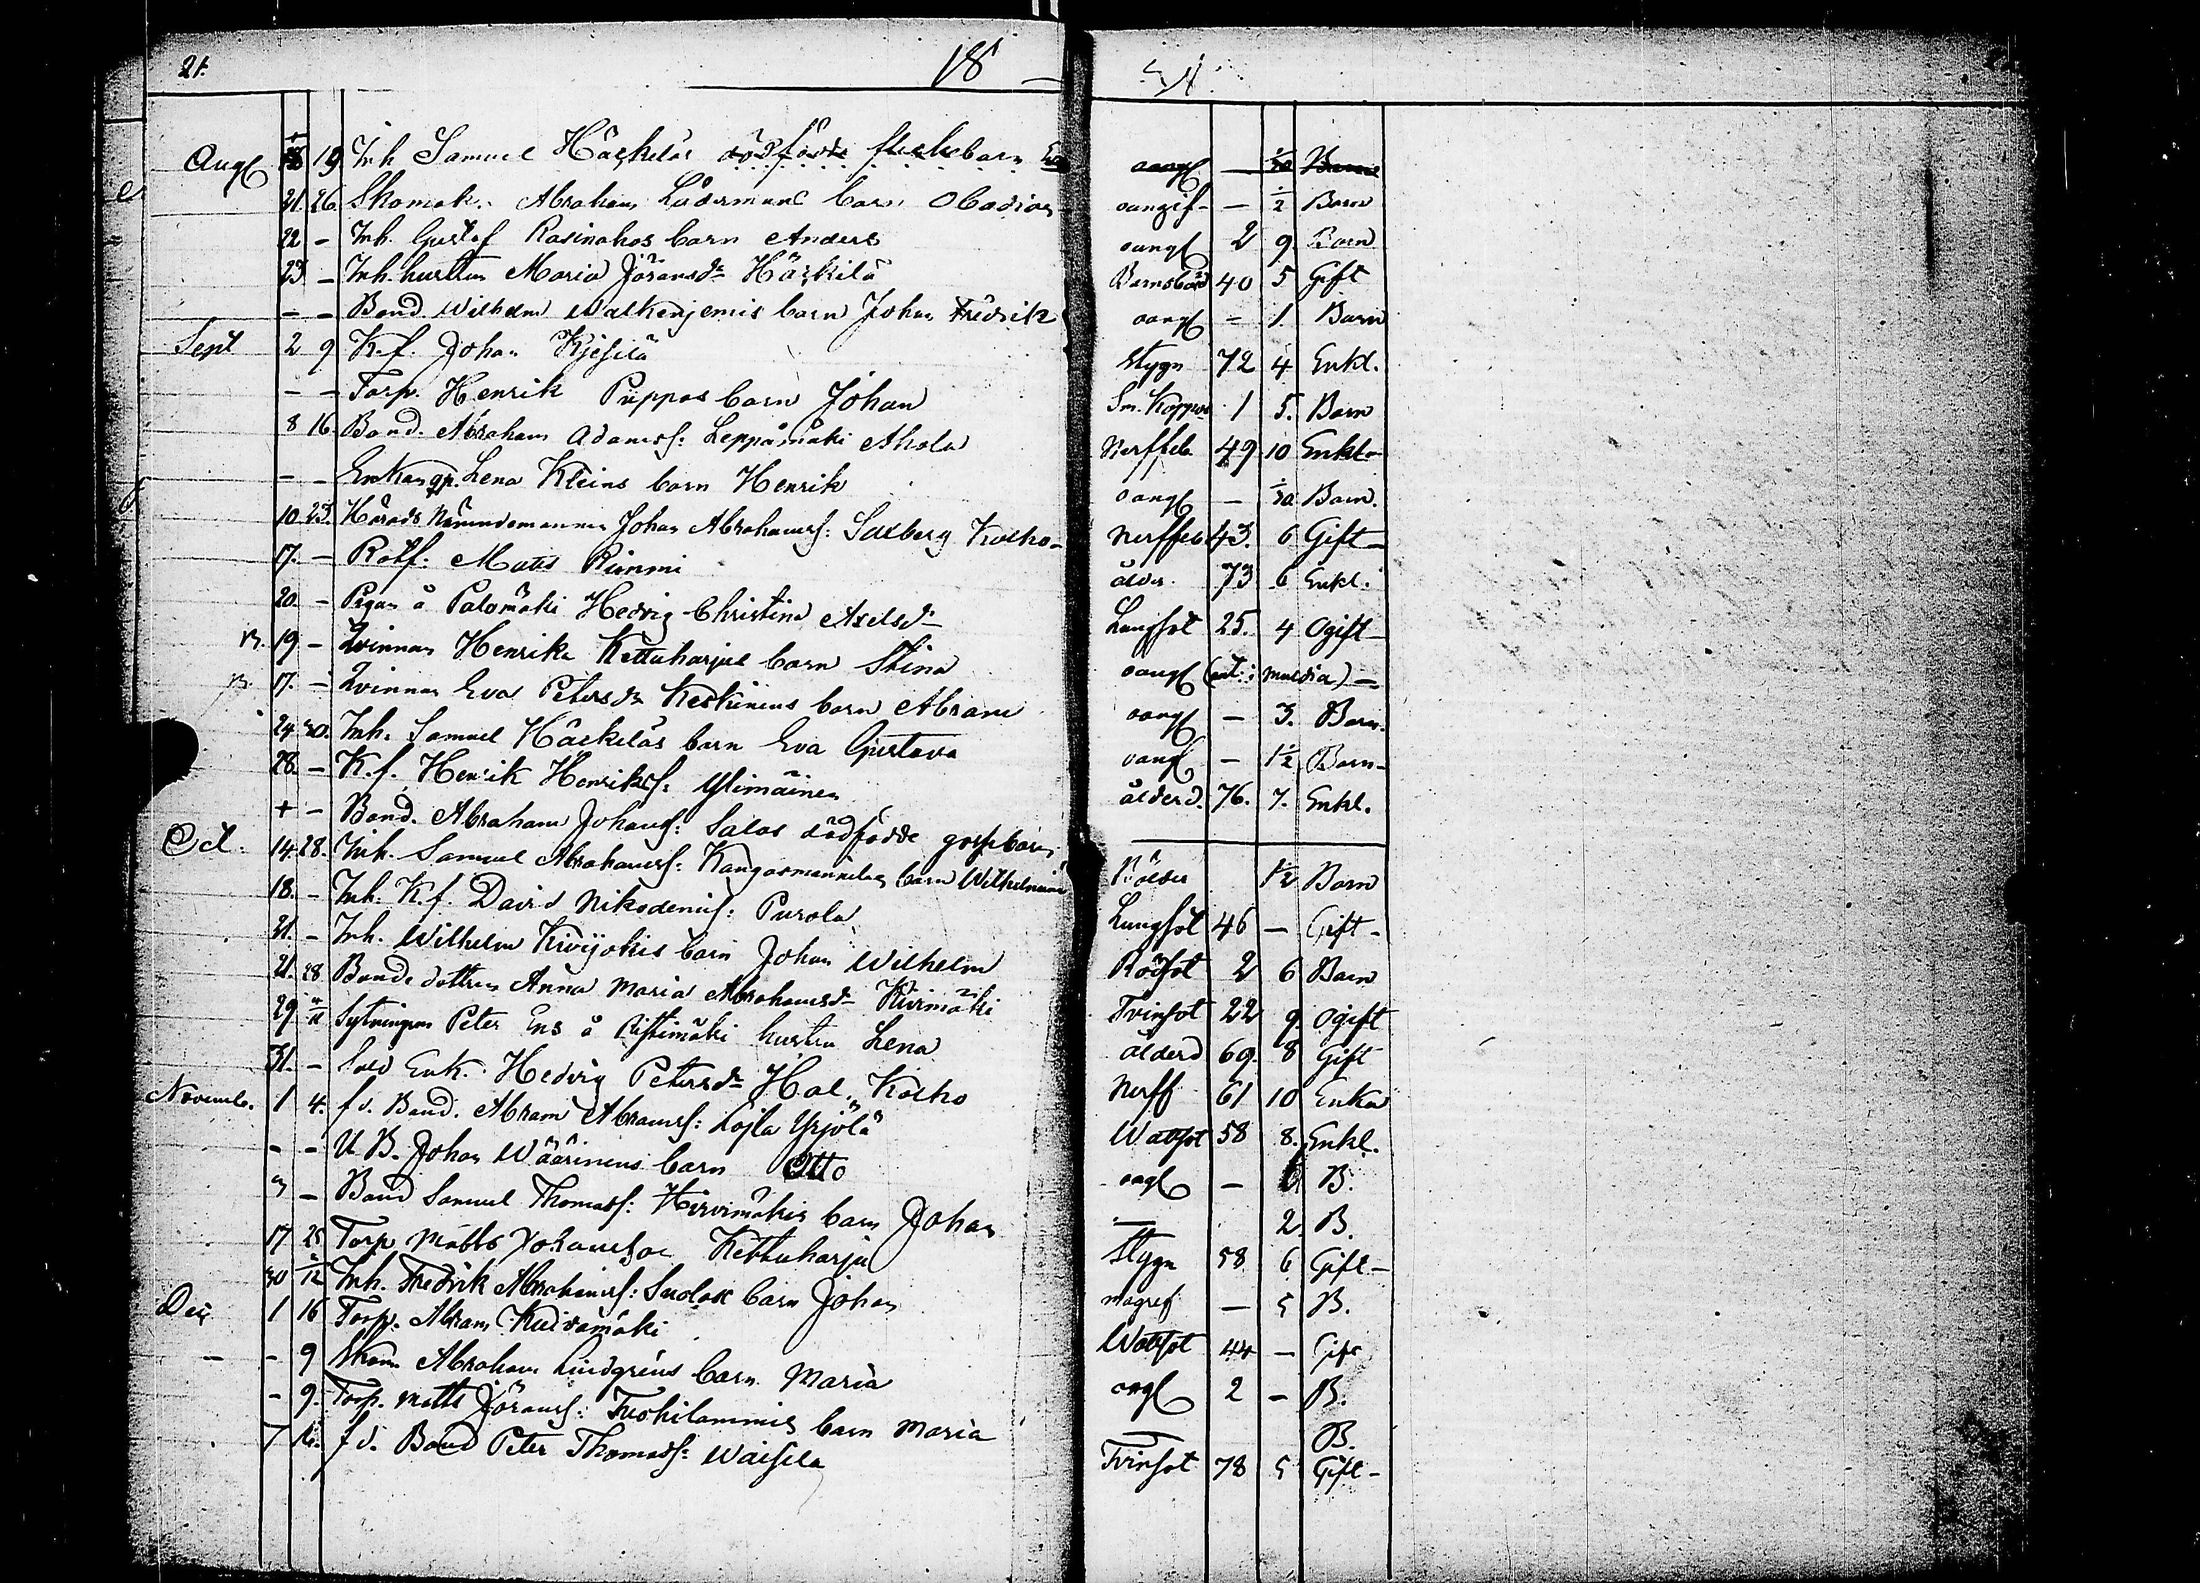 21. 18 51.
Aug 19 Inh Samuel Häckilas dödfödde flickebarn oangf — 1/30 Barn
21. 26. Skomak. Abraham Lådermans barn Obadias oangif — 1/2 Barn
22 — Inh. Gustaf Rasinahos barn Anders oangf 2 9. Barn
23 — Inh. hustrun Maria Jöransdr Häckilä Barnsbörd 40 5 Gift
— — Bond. Wilhelm Walkenjemis barn Johan Fredrik oangf — 1. Barn
Sept 2 9 K.f. Johan Kjesilä Stygn 72 4 Enkl.
— — Torp. Henrik Puppas barn Johan Sm. Koppor 1 5. Barn
8 16. Bond. Abraham Adamsf: Leppämäki Ahola Nerffeb 49 10 Enkl—
— — Enkan Lena Kleins barn Henrik oangf — 1/30 Barn.
10. 23. Härads Nämndemannen Johan Abrahamsf: Salberg Kolho— Nerffeb 43. 6 Gift—
17. — Rotf. Matts Rimmi ålder. 73 6 Enkl.
20. — Pigan å Palomäki Hedvig Christina Axelsdr Lungsot 25. 4 Ogift—
19 — Qvinnan Henrika Kettuharjus barn Stina oangf
17. — Qvinnan Eva Petersdr Keskinens barn Abram oangf — 3. Barn.
24 30. Inh. Samuel Häckiläs barn Eva Gustava oangf — 1/2 Barn—
28. — K.f. Henrik Henriksf: Ylimäinen ålderd. 76. 7. Enkl.
+ — Bond. Abraham Johansf: Salos dödfödde gossebarn
Oct. 14. 28. Inh. Samuel Abrahamsf: Kangasmannilas barn Wilhelmina 1/2 Barn
18. — Inh. K.f. David Nikodemusf: Purola Lungsot 46 — Gift—
21. — Inh. Wilhelm Kivijokis barn Johan Wilhelm Rödsot 2 6 Barn
21. 28 Bonde dottren Anna Maria Abrahamsdr Kivimäki Tvinsot 22 9. Ogift
29 Sytningsm Peter Ers å Ristimäki hustru Lena ålderd 69. 8 Gift
31. — Sold Enk. Hedvig Petersdr Hal. Kolho Nerff 61 10 Enka
Novemb. 1 4. f d. Bond. Abram Abramsf: Löjla Yrjölä Wattsot 58 8. Enkl.
— — U B. Johan Wäärinens barn Otto oagf — 6 B.
3 — Bond Samuel Thomasf: Hirvimäkis barn Johan — 2. B.
17 25 Torp Matts Johansson Kettuharju Stygn 58 6 Gift—
30 Inh. Fredrik Abrahamsf: Suolax barn Johan magref — 5 B.
Dec 1 16 Torp. Abram Kuivamäki Wattsot 44 — Gift
— 9 Skom Abraham Lindgrens barn Maria oagf 2 — B.
— 9. Torp. Matts Jöransf: Tuohilammis barn Maria — B.
7 16. f d. Bond Peter Thomasf: Waisela Tvinsot 78 5 Gift—